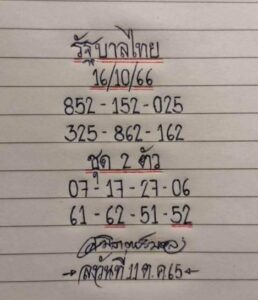 รัฐบาลไทย
16/10/66
852-152-025
325-862-162
ชุด 2 ตัว
07-17-27-06
61-62-51-52
ลงวันที่ 11 ต.ค 65